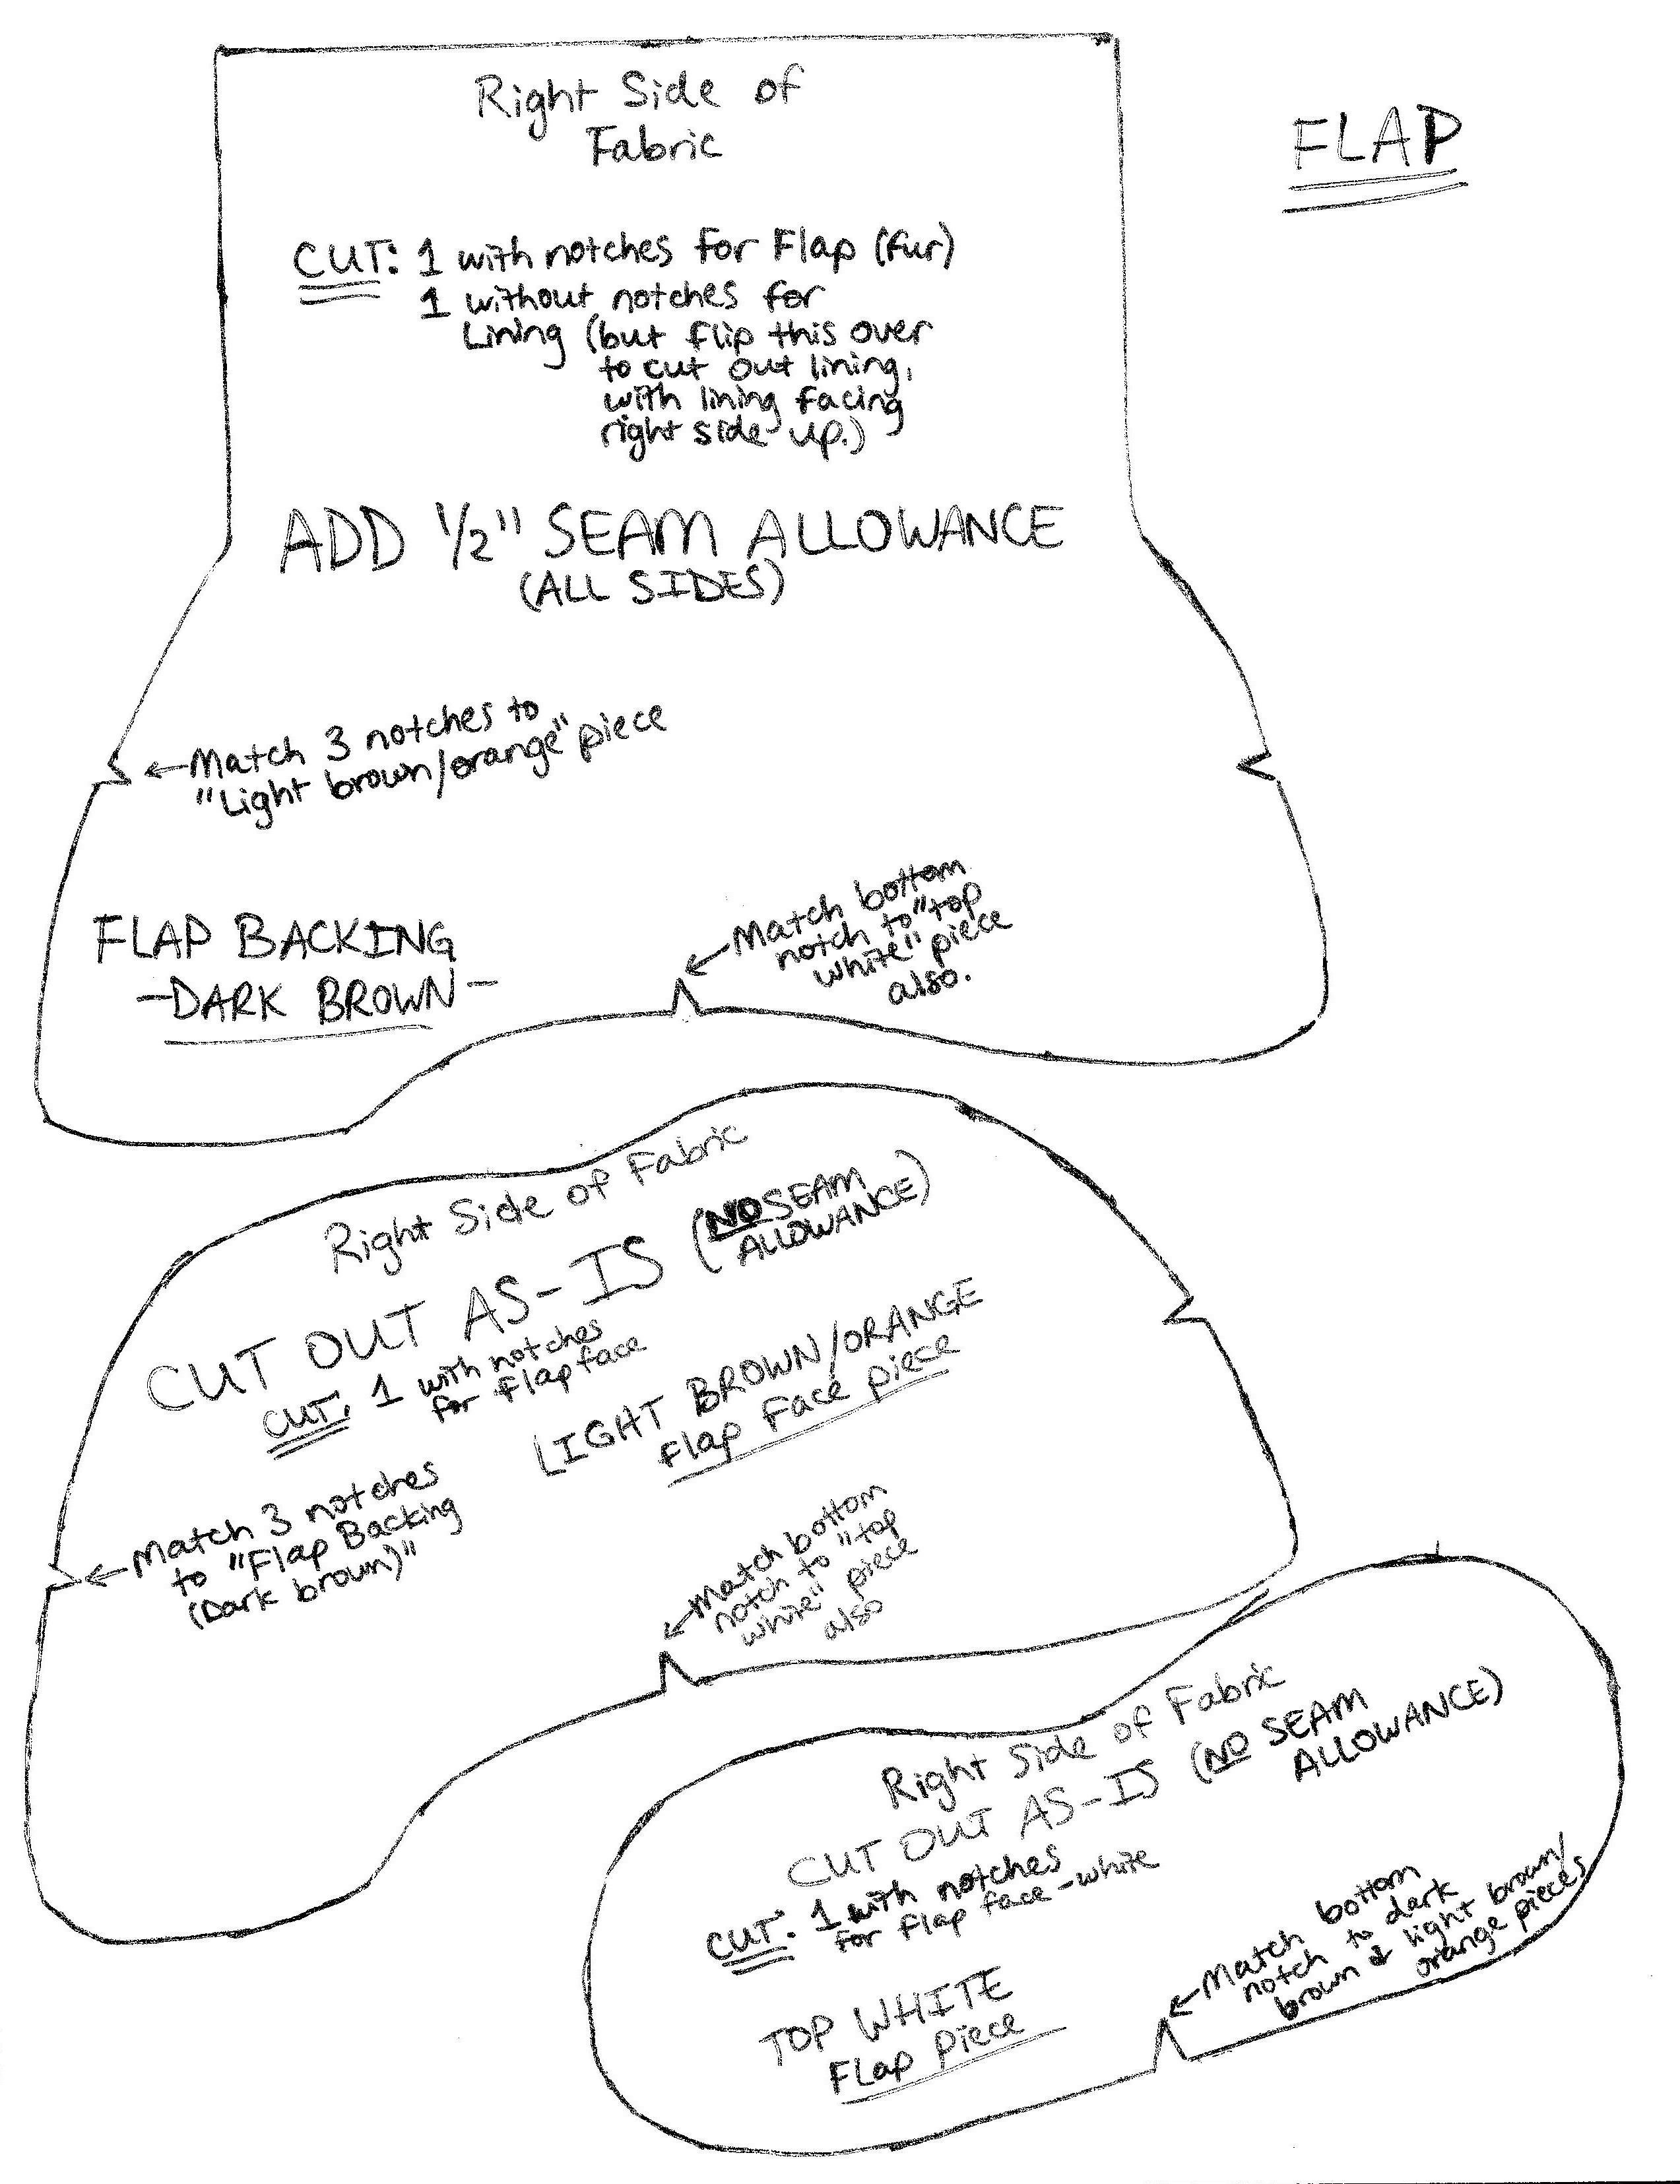 FLAP
Right Side of
Fabric
CUT: 1 with notches for Flap (fur)
1 without notches for
Lining (but flip this over
to cut out lining,
with lining facing
right side up.)
ADD 1/2" SEAM ALLOWANCE
(ALL SIDES)
←Match 3 notches to
"Light brown/orange" piece
FLAP BACKING
-DARK BROWN-
←Match bottom
notch to "top
white" piece
also.
Right Side of Fabric
CUT OUT AS-IS (NO SEAM
ALLOWANCE)
CUT: 1 with notches
for flap face
LIGHT BROWN/ORANGE
Flap Face piece
←Match 3 notches
to "Flap Backing
(Dark brown)"
←Match bottom
notch to "top
white" piece
also
Right Side of Fabric
CUT OUT AS-IS (NO SEAM
ALLOWANCE)
CUT: 1 with notches
for flap face-white
TOP WHITE
FLap Piece
←Match bottom
notch to dark
brown & light brown/
orange pieces